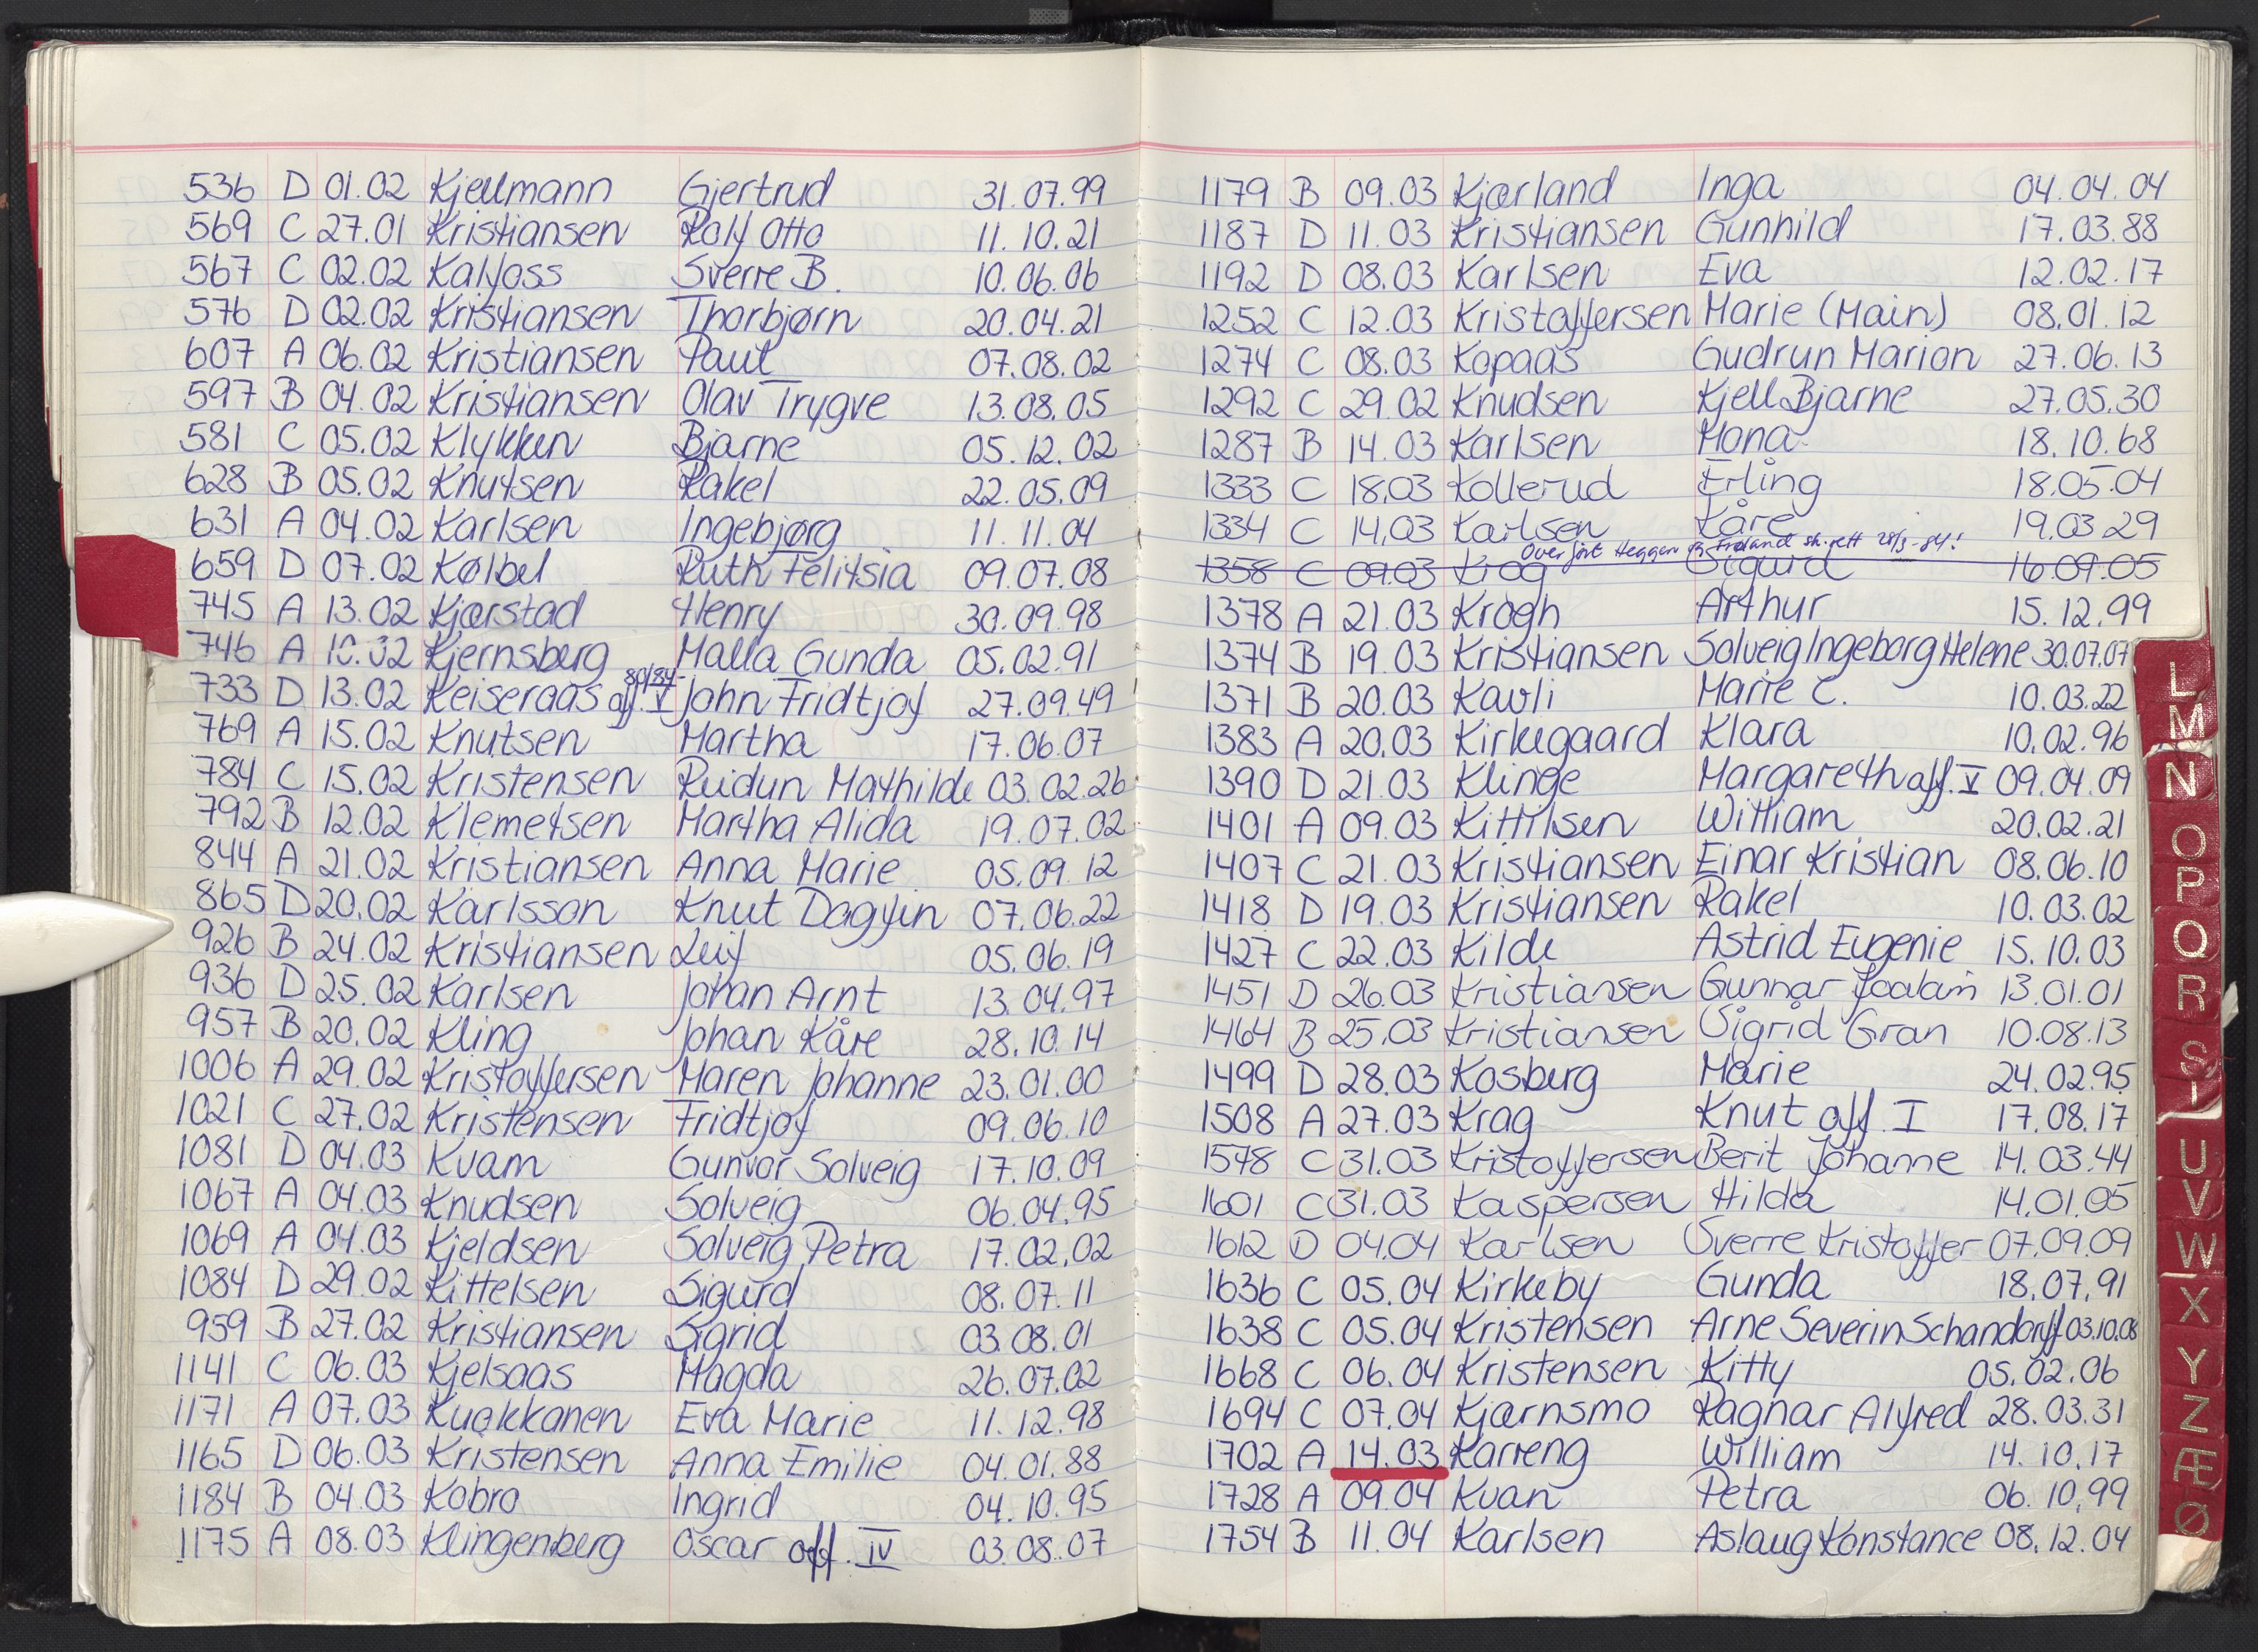 536 D 01.02 Kjellmann Gjertrud 31.07.99
569 C 27.01 Kristiansen Rolf Otto 11.10.21
567 C 02.02 Kalfoss Sverre B. 10.06.06
576 D 02.02 Kristiansen Thorbjørn 20.04.21
607 A 06.02 Kristiansen Paul 07.08.02
597 B 04.02 Kristiansen Olav Trygve 13.08.05
581 C 05.02 Klykken Bjarne 05.12.02
628 B 05.02 Knutsen Rakel 22.05.09
631 A 04.02 Karlsen Ingebjørg 11.11.04
659 D 07.02 Kølbel Ruth Felitsia 09.07.08
745 A 13.02 Kjærstad Henry 30.09.98
746 A 10.02 Kjernsberg Malla Gunda 05.02.91
733 D 13.02 Keiseraas aff. V 80/84 John Fridtjof 27.09.49
769 A 15.02 Knutsen Martha 17.06.07
784 C 15.02 Kristensen Reidun Mathilde 03.02.26
792 B 12.02 Klemetsen Martha Alida 19.07.02
844 A 21.02 Kristiansen Anna Marie 05.09.12
865 D 20.02 Karlsson Knut Dagfin 07.06.22
926 B 24.02 Kristiansen Leif 05.06.19
936 D 25.02 Karlsen Johan Arnt 13.04.97
957 B 20.02 Kling Johan Kåre 28.10.14
1006 A 29.02 Kristoffersen Maren Johanne 23.01.00
1021 C 27.02 Kristensen Fridtjof 09.06.10
1081 D 04.03 Kvam Gunvor Solveig 17.10.09
1067 A 04.03 Knudsen Solveig 06.04.95
1069 A 04.03 Kjeldsen Solveig Petra 17.02.02
1084 D 29.02 Kittelsen Sigurd 08.07.11
959 B 27.02 Kristiansen Sigrid 03.08.01
1141 C 06.03 Kjelsaas Magda 26.07.02
1171 A 07.03 Kuokkanen Eva Marie 11.12.98
1165 D 06.03 Kristensen Anna Emilie 04.01.88
1184 B 04.03 Kobro Ingrid 04.10.95
1175 A 08.03 Klingenberg Oscar aff. IV 03.08.07
1179 B 09.03 Kjærland Inga 04.04.04
1187 D 11.03 Kristiansen Gunhild 17.03.88
1192 D 08.03 Karlsen Eva 12.02.17
1252 C 12.03 Kristoffersen Marie (Main) 08.01.12
1274 C 08.03 Kopaas Gudrun Marion 27.06.13
1292 C 29.02 Knudsen Kjell Bjarne 27.05.30
1287 B 14.03 Karlsen Mona 18.10.68
1333 C 18.03 Kollerud Erling 18.05.04
1334 C 14.03 Karlsen Kåre 19.03.29
Overført Heggen og Frøland sk.rett 28/3-84!
1358 C 09.03 Krog Sigurd 16.09.05
1378 A 21.03 Krogh Arthur 15.12.99
1374 B 19.03 Kristiansen Solveig Ingeborg Helene 30.07.07
1371 B 20.03 Kavli Marie C. 10.03.22
1383 A 20.03 Kirkegaard Klara 10.02.96
1390 D 21.03 Klinge Margareth aff. V 09.04.09
1401 A 09.03 Kittilsen William 20.02.21
1407 C 21.03 Kristiansen Einar Kristian 08.06.10
1418 D 19.03 Kristiansen Rakel 10.03.02
1427 C 22.03 Kilde Astrid Eugenie 15.10.03
1451 D 26.03 Kristiansen Gunnar Joakim 13.01.01
1464 B 25.03 Kristiansen Sigrid Gran 10.08.13
1499 D 28.03 Kosberg Marie 24.02.95
1508 A 27.03 Krag Knut aff. I 17.08.17
1578 C 31.03 Kristoffersen Berit Johanne 14.03.44
1601 C 31.03 Kaspersen Hilda 14.01.05
1612 D 04.04 Karlsen Sverre Kristoffer 07.09.09
1636 C 05.04 Kirkeby Gunda 18.07.91
1638 C 05.04 Kristensen Arne Severin Schandorff 03.10.08
1668 C 06.04 Kristensen Kitty 05.02.06
1694 C 07.04 Kjærnsmo Ragnar Alfred 28.03.31
1702 A 14.03 Karreng William 14.10.17
1728 A 09.04 Kvan Petra 06.10.99
1754 B 11.04 Karlsen Aslaug Konstance 08.12.04
L
M
N
O
P
Q
R
S
T
U
V
W
X
Y
Z
Æ
Ø